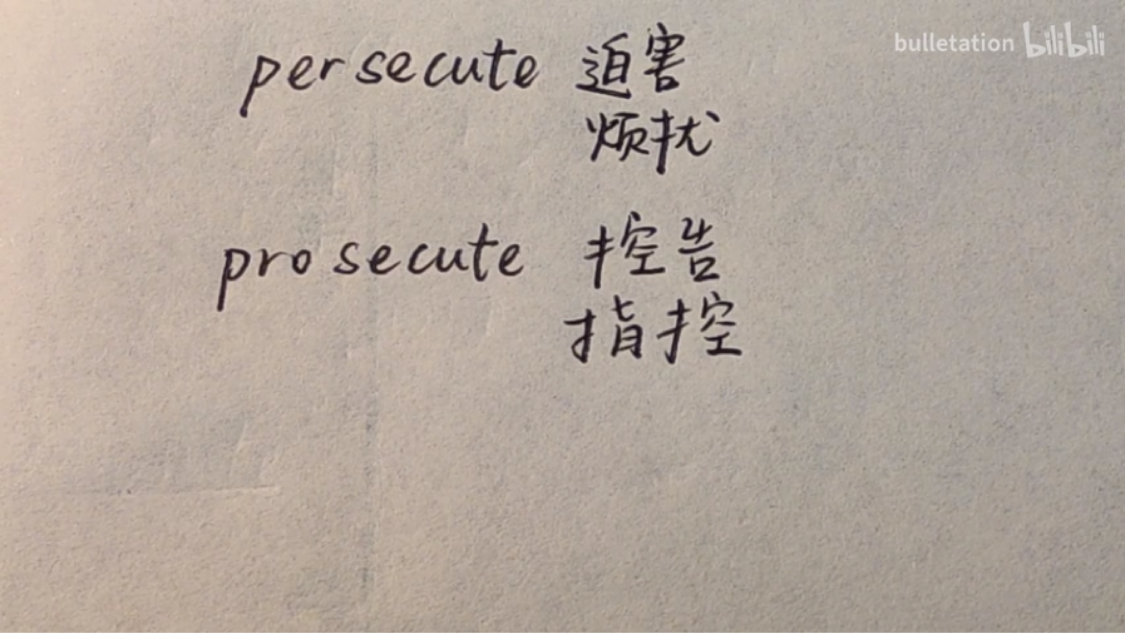 bulletation bilibili
persecute 迫害
烦扰
prosecute 控告
指控